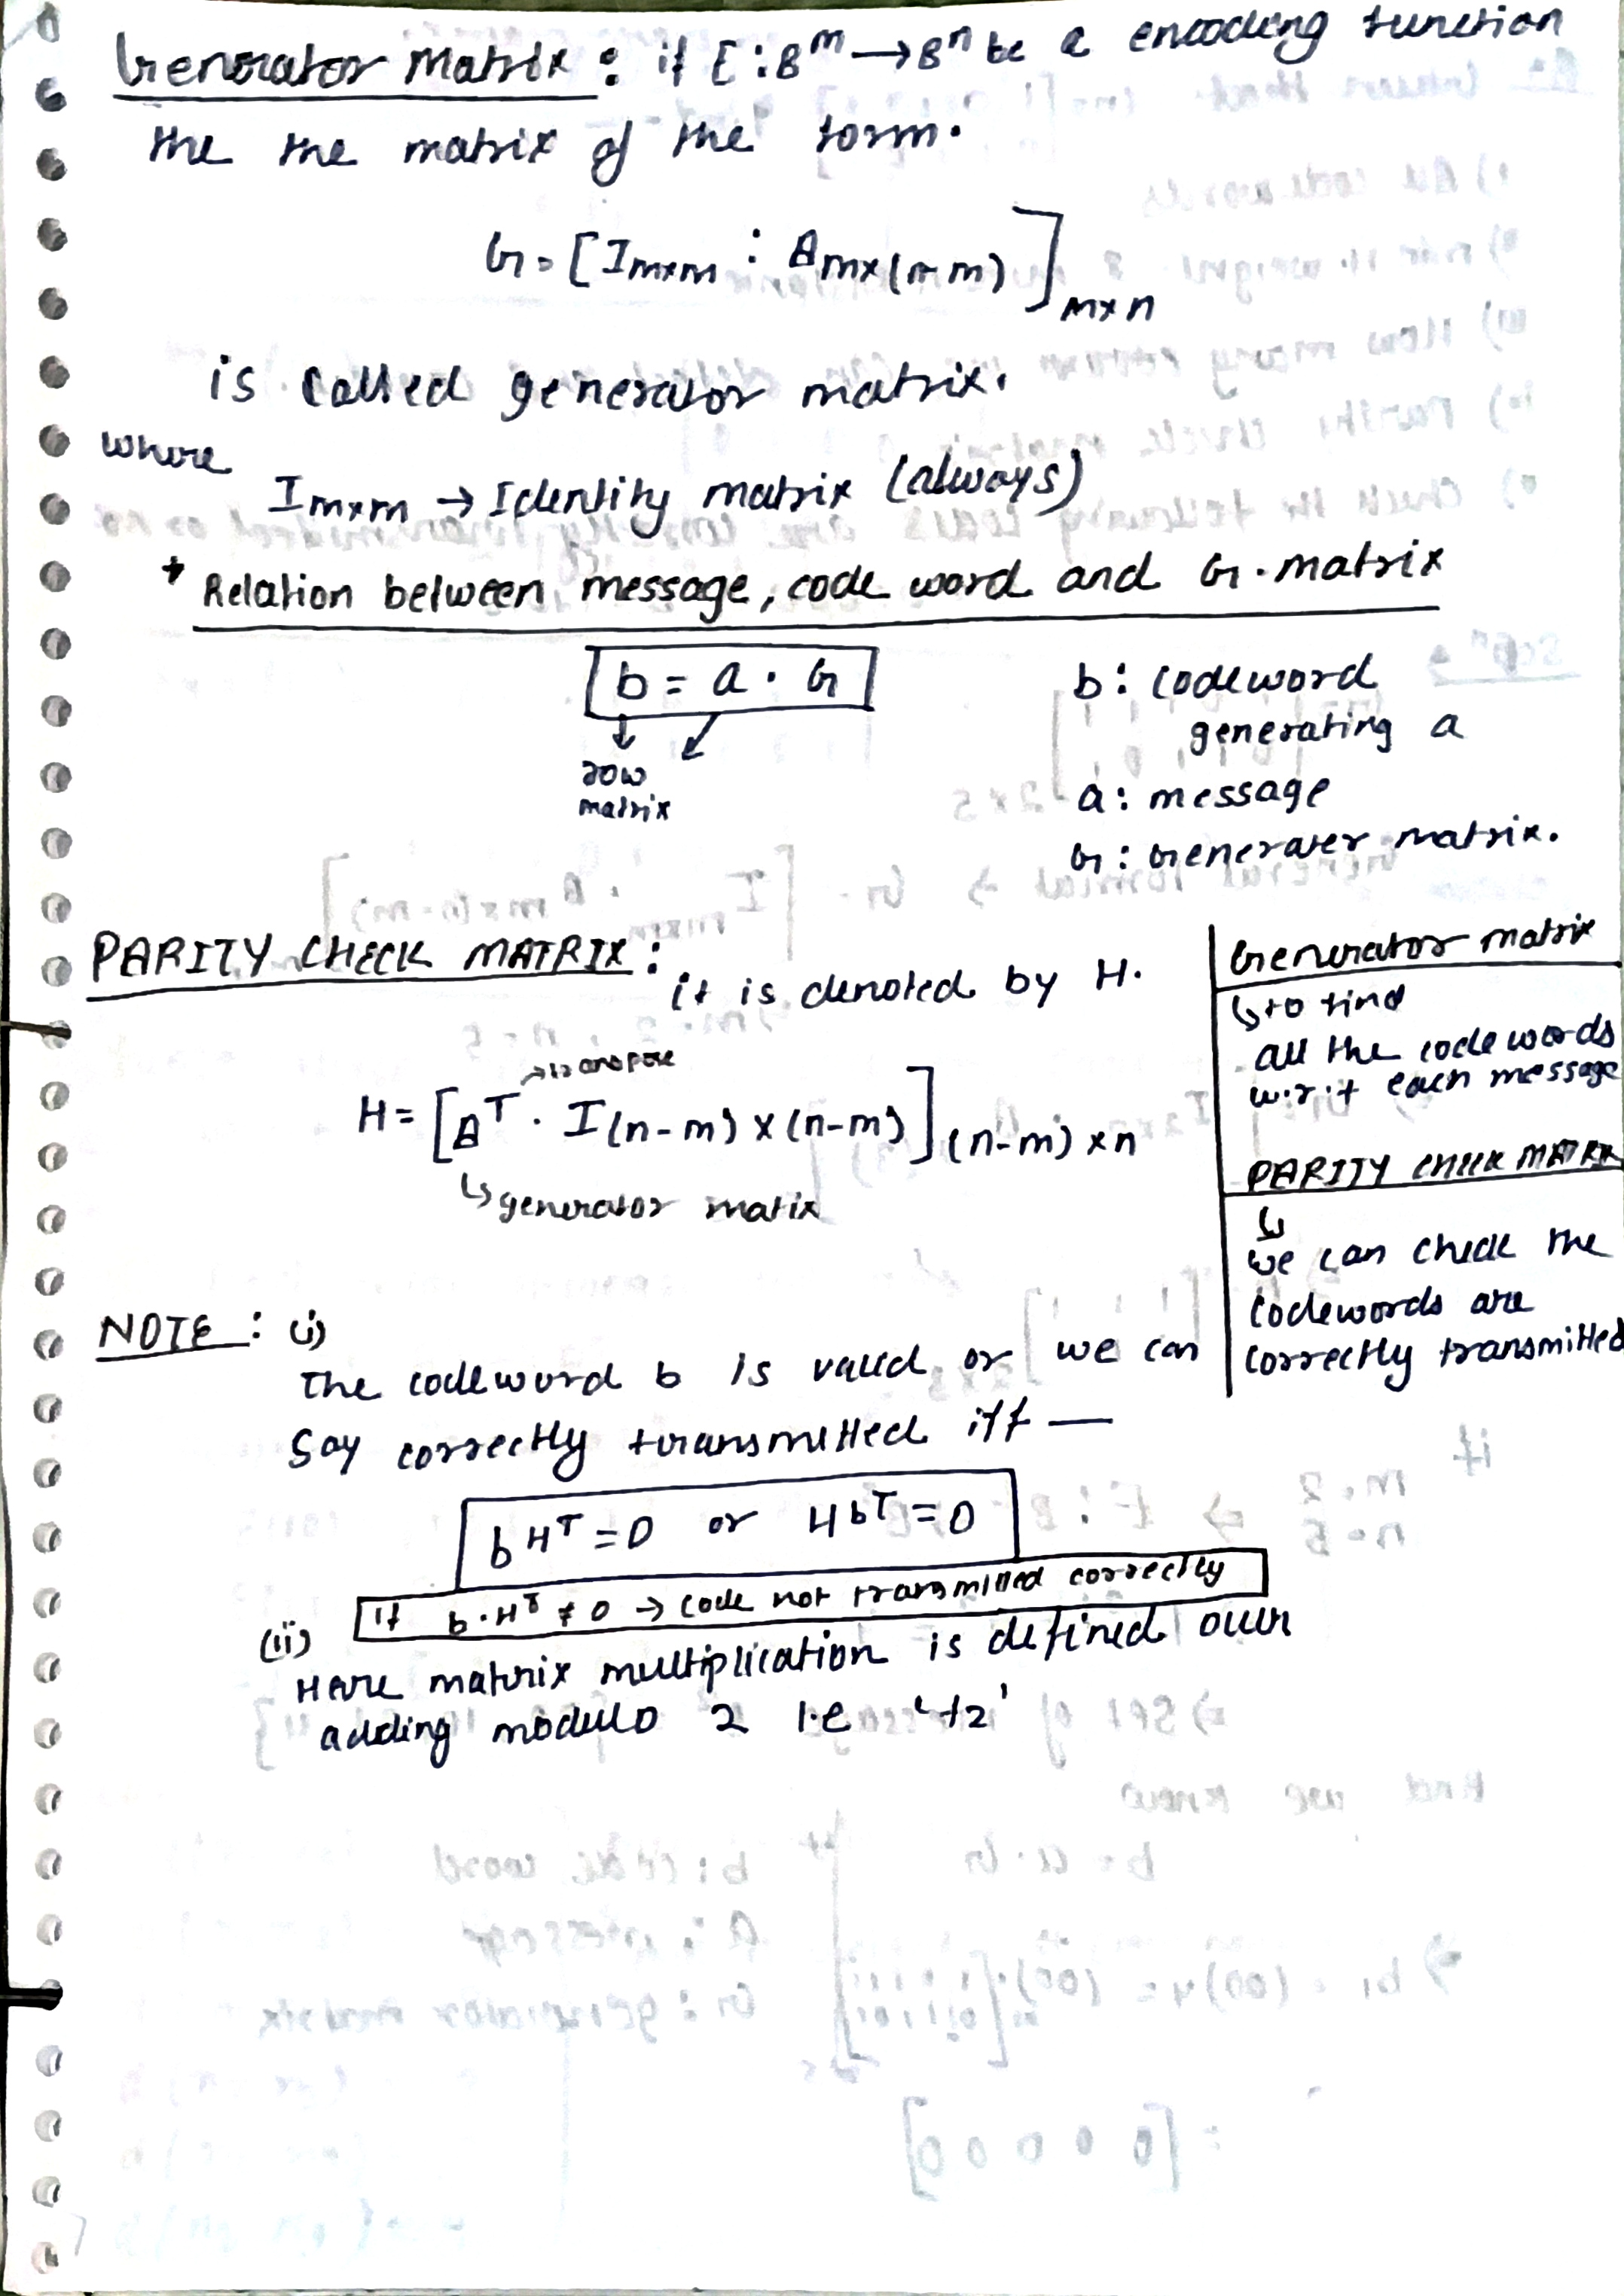 Generator Matrix : if E : B^m → B^n be a encoding function
the the matrix of the form.
G = [ I_m×m : A_m×(n-m) ]_m×n
is called generator matrix.
where
I_m×m → Identity matrix (always)
* Relation between message, code word and G.matrix
b = a . G
row
matrix
b : codeword
generating a
a : message
G : Generater matrix.
PARITY CHECK MATRIX :
it is denoted by H.
→ transpose
H = [ A^T . I_(n-m)×(n-m) ]_(n-m)×n
↳ generator matix
Generator matrix
↳ to find
all the code words
w.r.t each message
PARITY CHECK MATRIX
↳
we can check the
codewords are
correctly transmitted
NOTE : (i)
The codeword b is valid or we can
say correctly transmitted iff —
b H^T = 0 or H b^T = 0
if b.H^T ≠ 0 → code not transmitted correctly
(ii)
Here matrix multiplication is defined over
adding modulo 2 i.e '+2'